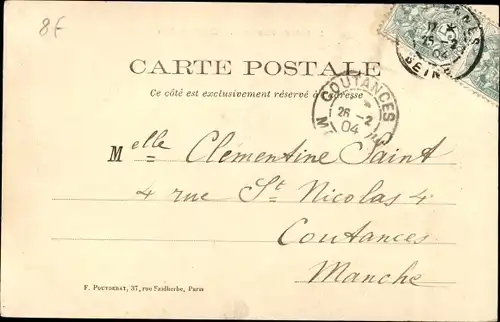 8F
CARTE POSTALE
Ce côté est exclusivement réservé à l'adresse
COUTANCES
26 -2
04
25 -2
04
SEINE
Melle Clémentine Saint
4 rue St Nicolas 4
Coutances
Manche
F. POUYDEBAT, 37, rue Faidherbe, Paris